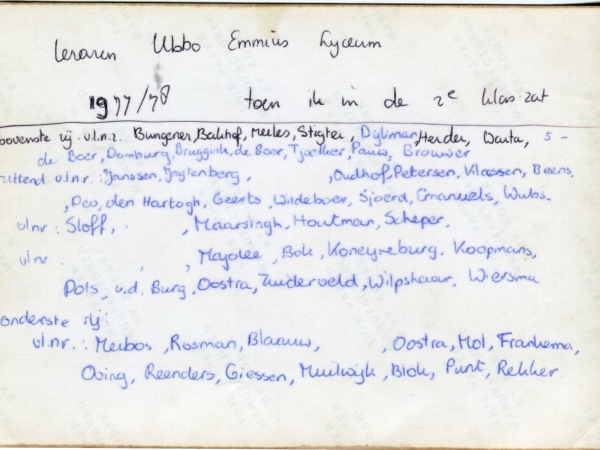 leraren Ubbo Emmius Lyceum
1977/78 toen ik in de 2e klas zat
bovenste rij v.l.n.r. Bungener, Bakhof, Meeles, Stigter, Dijlimar, Herder, Warta, 5 -
de Boer, Domburg, Bruggink, de Boor, Tjoelker, Pauw, Brouwer
zittend v.l.n.r.: Janssen, , Oudhof, Petersen, Klaassen, Beens
, den Hartogh, Geerts, Wildeboer, Sjoerd, Emanuels, Wubs.
vlnr: Sloff, . , Maarsingh, Houtman, Scheper.
vlnr . , Majolee, Bok, Koneyneburg, Koopmans,
Pols, v.d. Burg, Oostra, Zuiderveld, Wilpshaar, Wiersma
onderste rij:
vlnr.: Meibos, Rosman, Blaauw, , Oostra, Mol, Frankema,
Oving, Reenders, Giessen, Muilwijk, Blok, Punt, Rekker.